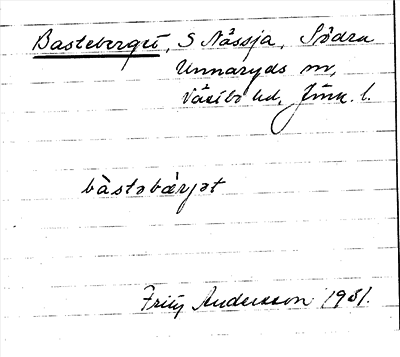 Basteberget, S Nässja, Södra
Unnaryds sn,
Västbo hd, Jönk. l.
bàstəbæ̀rjət
Fritz Andersson 1931.